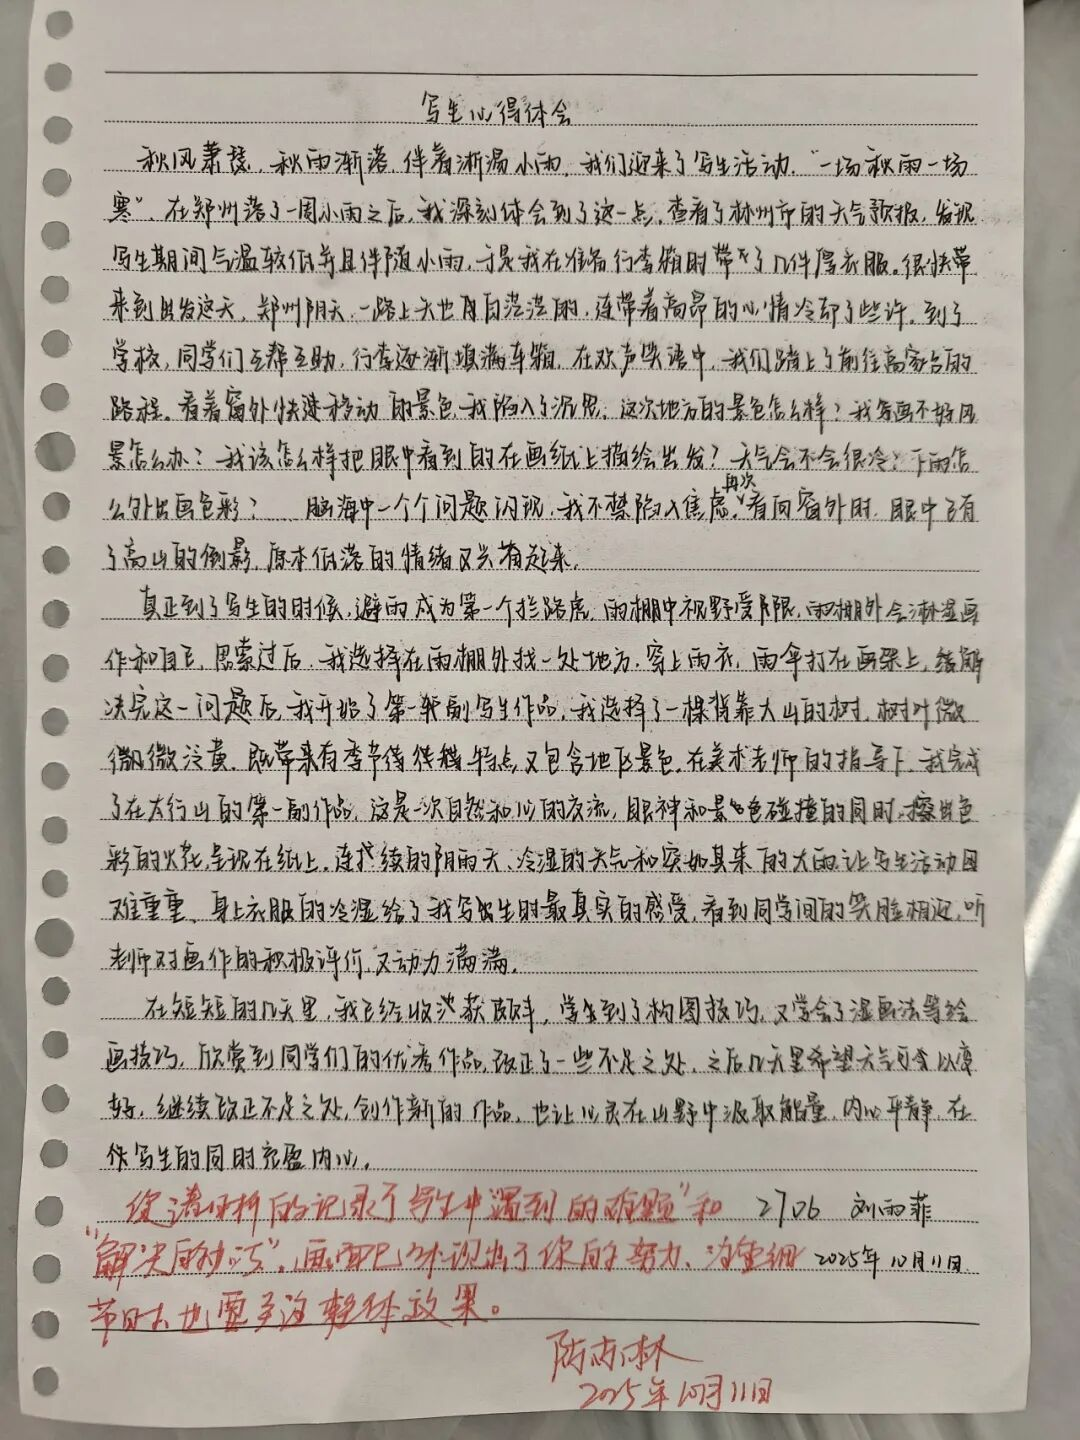 写生心得体会
秋风萧瑟，秋雨渐落，伴着淅沥小雨，我们迎来了写生活动，“一场秋雨一场
寒”，在郑州落了一周小雨之后，我深刻体会到了这一点，查看了林州市的天气预报，发现
写生期间气温较低并且伴随小雨，于是我在准备行李箱时带了几件厚衣服。很快带
来到出发这天，郑州阴天，一路上天也是白茫茫的，连带着高昂的心情冷却了些许，到了
学校，同学们互帮互助，行李逐渐填满车箱，在欢声笑语中，我们踏上了前往高家台的
路程。看着窗外快速移动的景色，我陷入了沉思，这次地方的景色怎么样？我写画不好风
景怎么办？我该怎么样把眼中看到的在画纸上描绘出发？天气会不会很冷？下雨怎
么外出画色彩？……脑海中一个个问题闪现，我不禁陷入焦虑，再次看向窗外时，眼中已有
了高山的倒影，原本低落的情绪又兴奋起来。
真正到了写生的时候，避雨成为第一个拦路虎，雨棚中视野受限，雨棚外会淋湿画
作和自己，思索过后，我选择在雨棚外找一处地方，穿上雨衣，雨伞打在画架上，解
决完这一问题后，我开始了第一副写生作品，我选择了一棵背靠大山的树，树叶微
微微泛黄，既带来有季节特点，又包含地区景色，在美术老师的指导下，我完成
了在太行山的第一副作品，这是一次自然和心的交流，眼神和景色碰撞的同时，擦出色
彩的火花，呈现在纸上，连续的阴雨天、冷湿的天气和突如其来的大雨让写生活动困
难重重，身上衣服的冷湿给了我写生时最真实的感受，看到同学间的笑脸相迎，听
老师对画作的积极评价，又动力满满。
在短短的几天里，我已经收获颇丰，学到了构图技巧，又学会了湿画法等绘
画技巧，欣赏到同学们的优秀作品，改正了一些不足之处，之后几天里希望天气可以变
好，继续改正不足之处，创作新的作品，也让心灵在山野中汲取能量，内心平静，在
写生的同时充盈内心。
2706 刘雨菲
2025年10月11日
“解决的办法”，画面已经体现出了你的努力、注重细
节时也要关注整体效果。
2025年10月11日